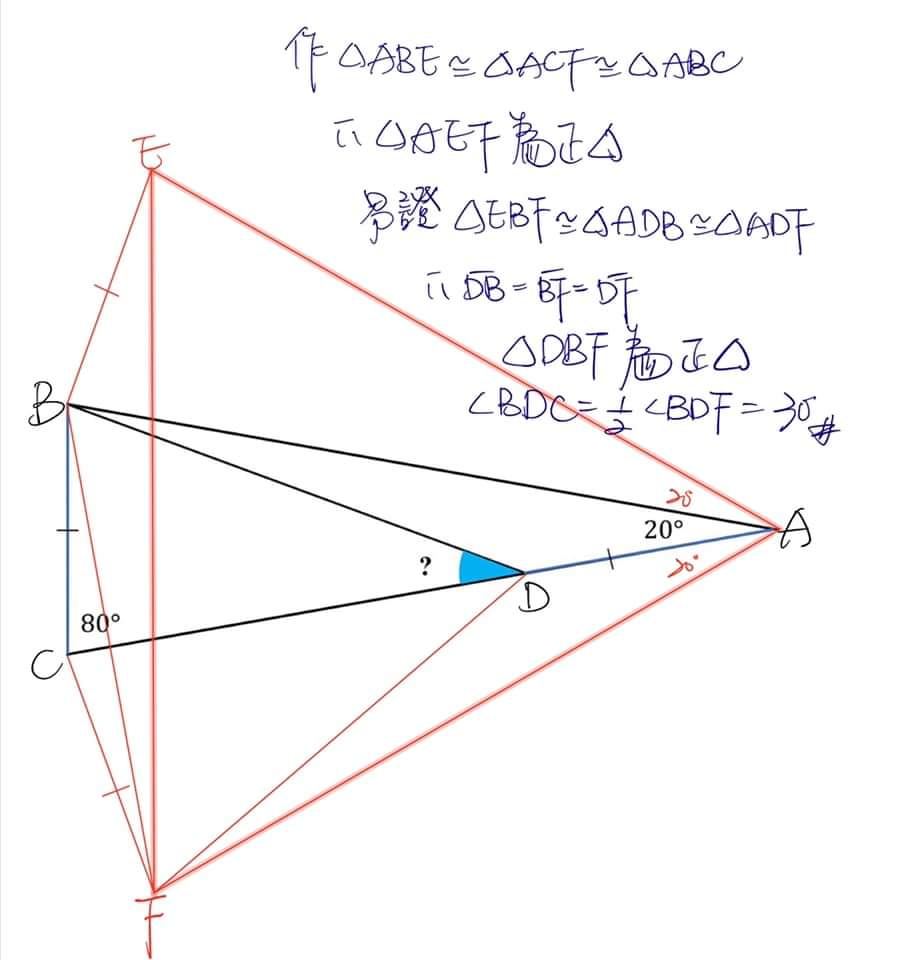 作 △ABE ≅ △ACF ≅ △ABC
∴ △AEF 為正△
易證 △EBF ≅ △ADB ≅ △ADF
∴ D̅B̅ = B̅F̅ = D̅F̅
△DBF 為正△
∠BDC = 1/2 ∠BDF = 30° #
E
B
20°
A
20°
?
20°
D
80°
C
F